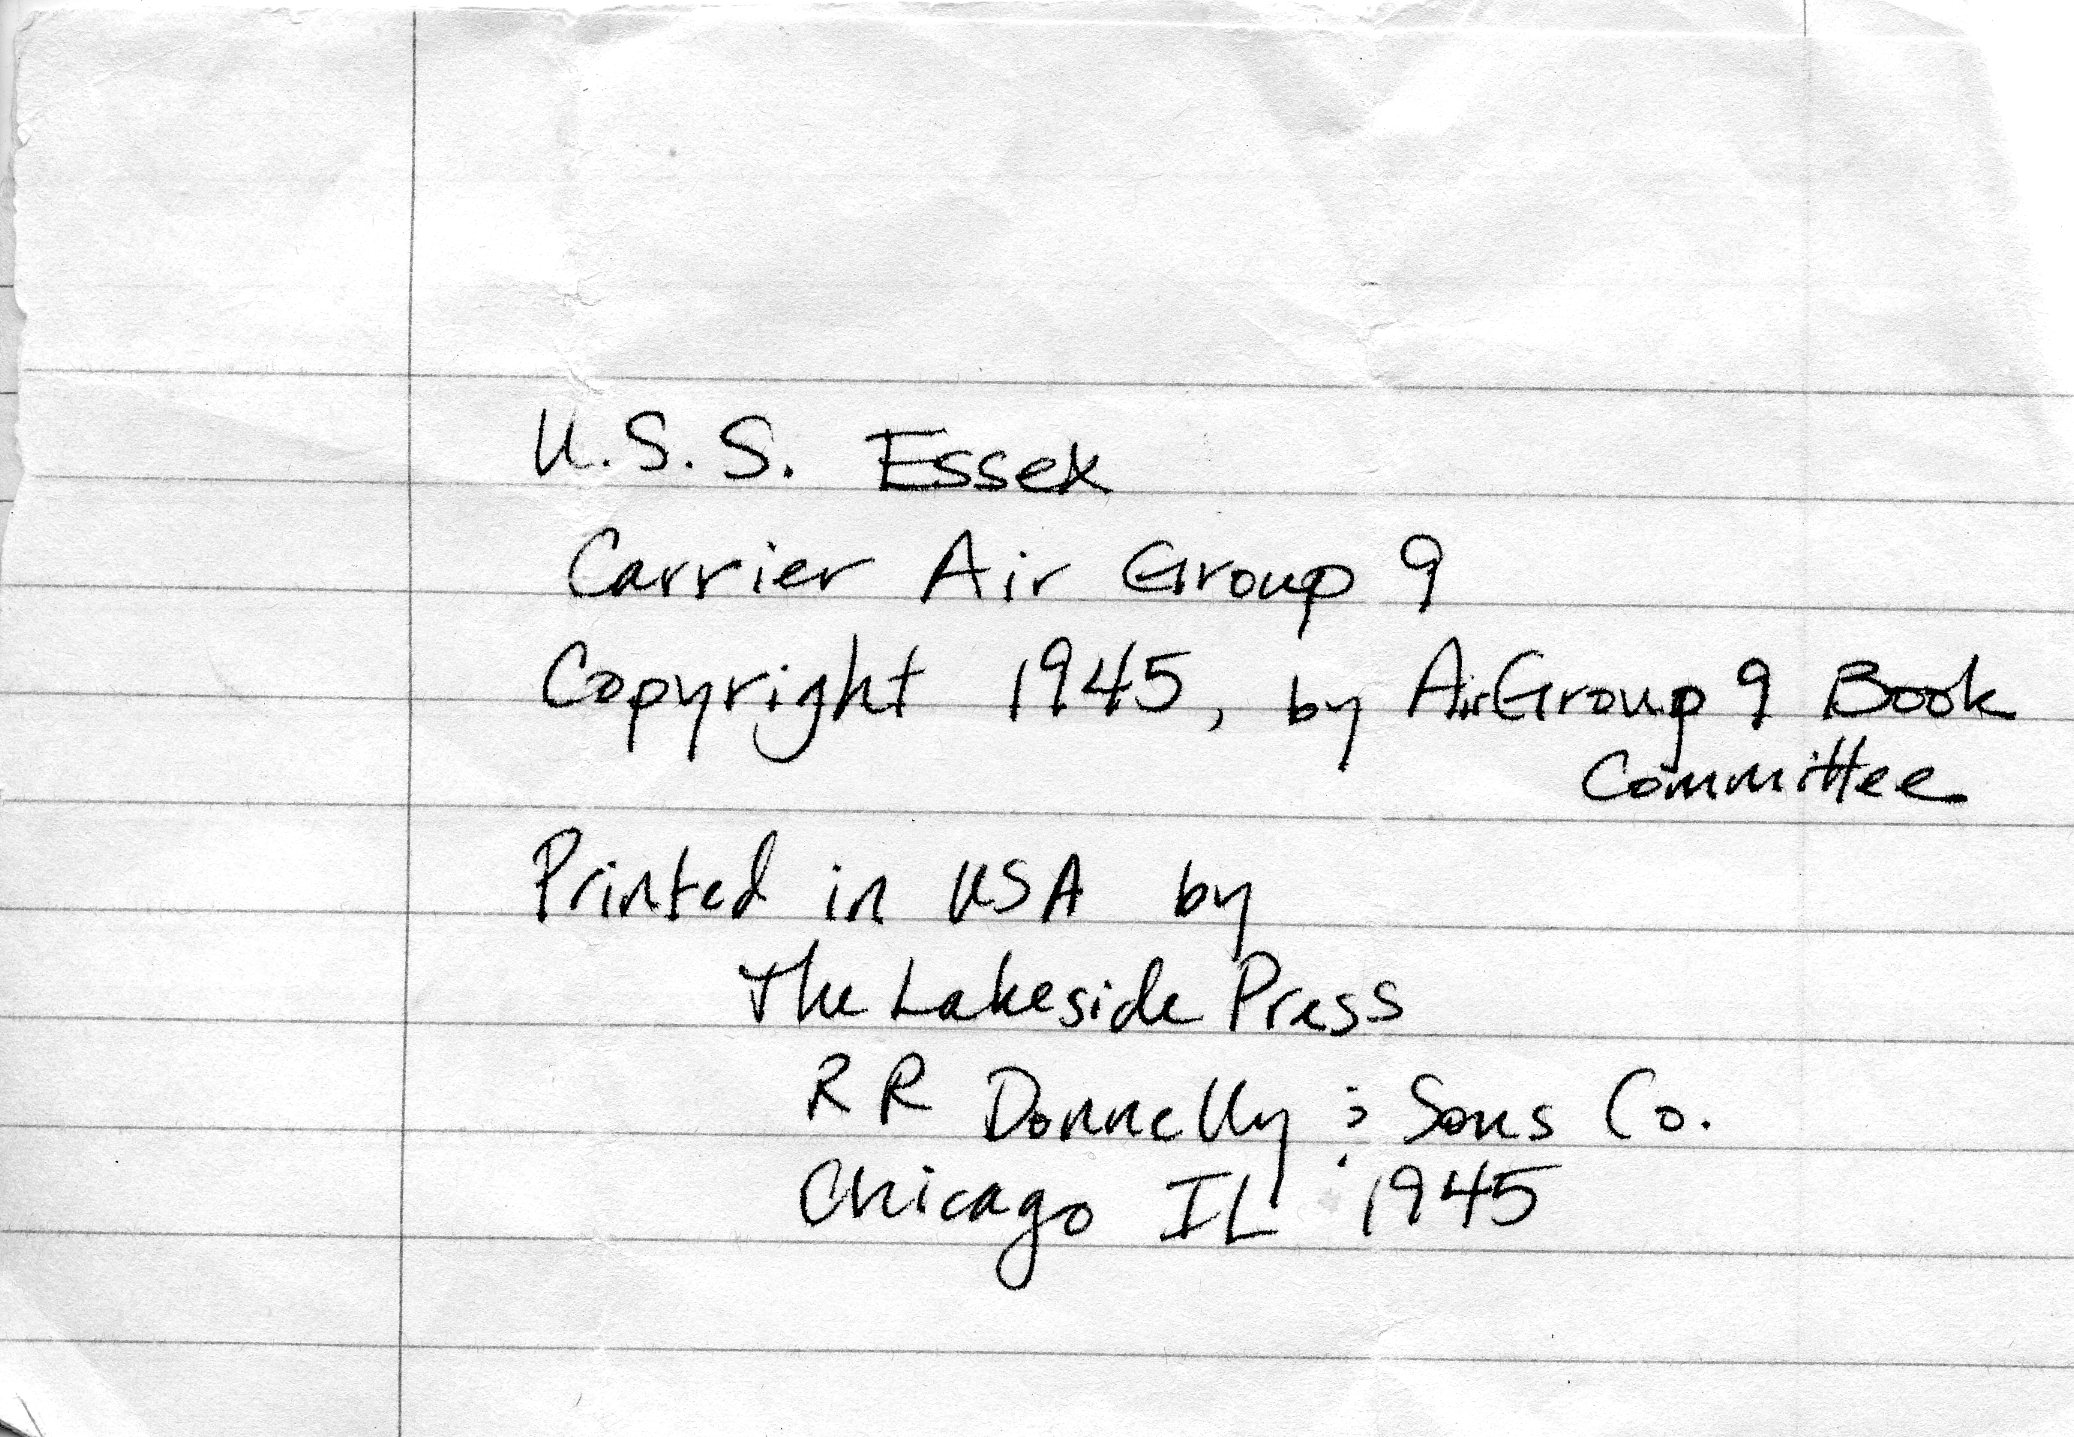 U.S.S. Essex
Carrier Air Group 9
Copyright 1945, by AirGroup 9 Book
Committee
Printed in USA by
The Lakeside Press
RR Donnelly & Sons Co.
Chicago IL 1945